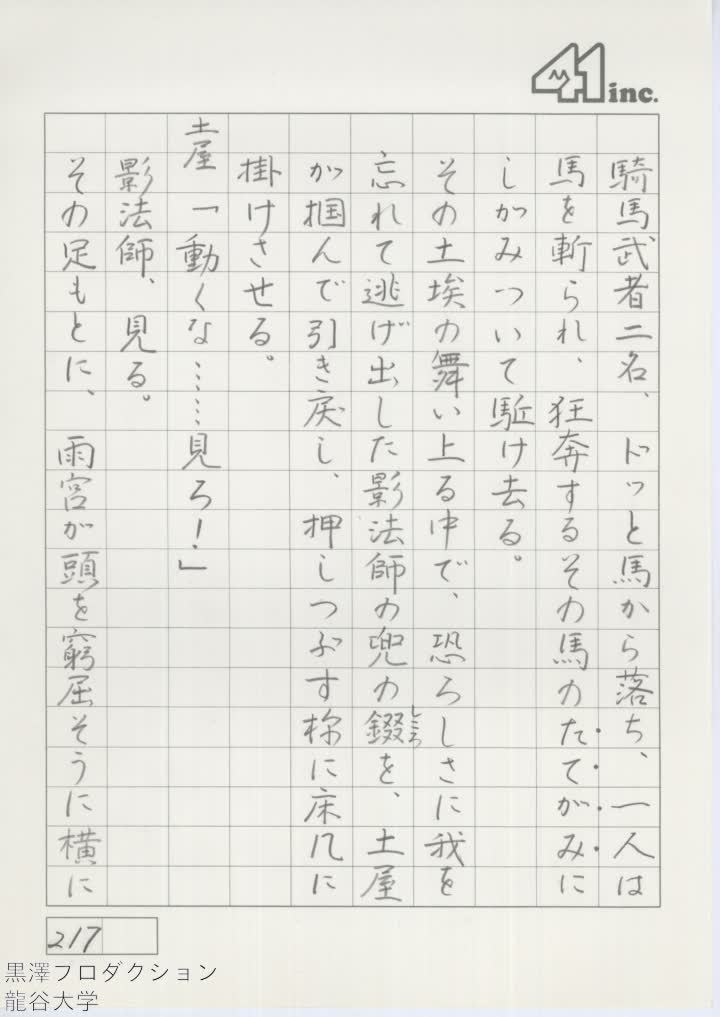 41 inc.
騎馬武者二名、ドッと馬から落ち、一人は
馬を斬られ、狂奔するその馬のたてがみに
しがみついて駈け去る。
その土埃の舞い上る中で、恐ろしさに我を
忘れて逃げ出した影法師の兜の錣を、土屋
しころ
が掴んで引き戻し、押しつぶす様に床几に
掛けさせる。
土屋「動くな……見ろ！」
影法師、見る。
その足もとに、雨宮が頭を窮屈そうに横に
217
黒澤プロダクション
龍谷大学